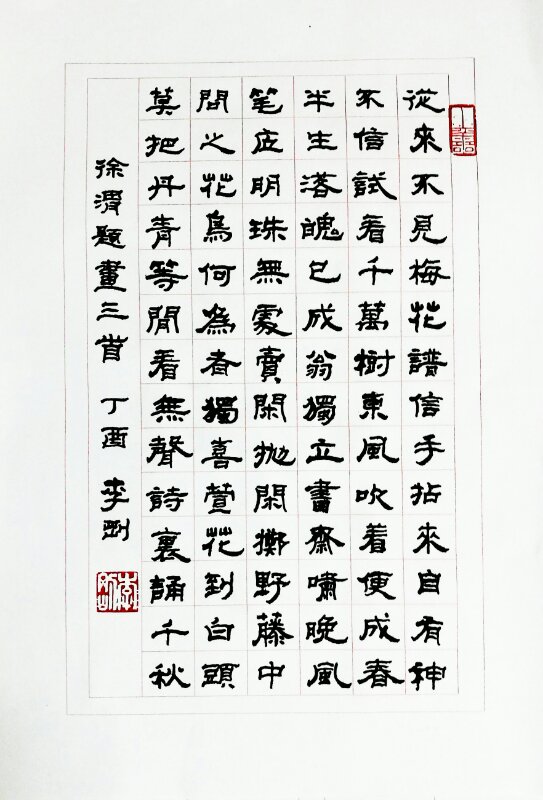 從來不見梅花譜信手拈來自有神
不信試看千萬樹東風吹着便成春
半生落魄已成翁獨立書齋嘯晚風
笔底明珠無處賣閑抛閑擲野藤中
問之花鳥何為者獨喜萱花到白頭
莫把丹青等閒看無聲詩裏誦千秋
徐渭題畫三首 丁酉 李